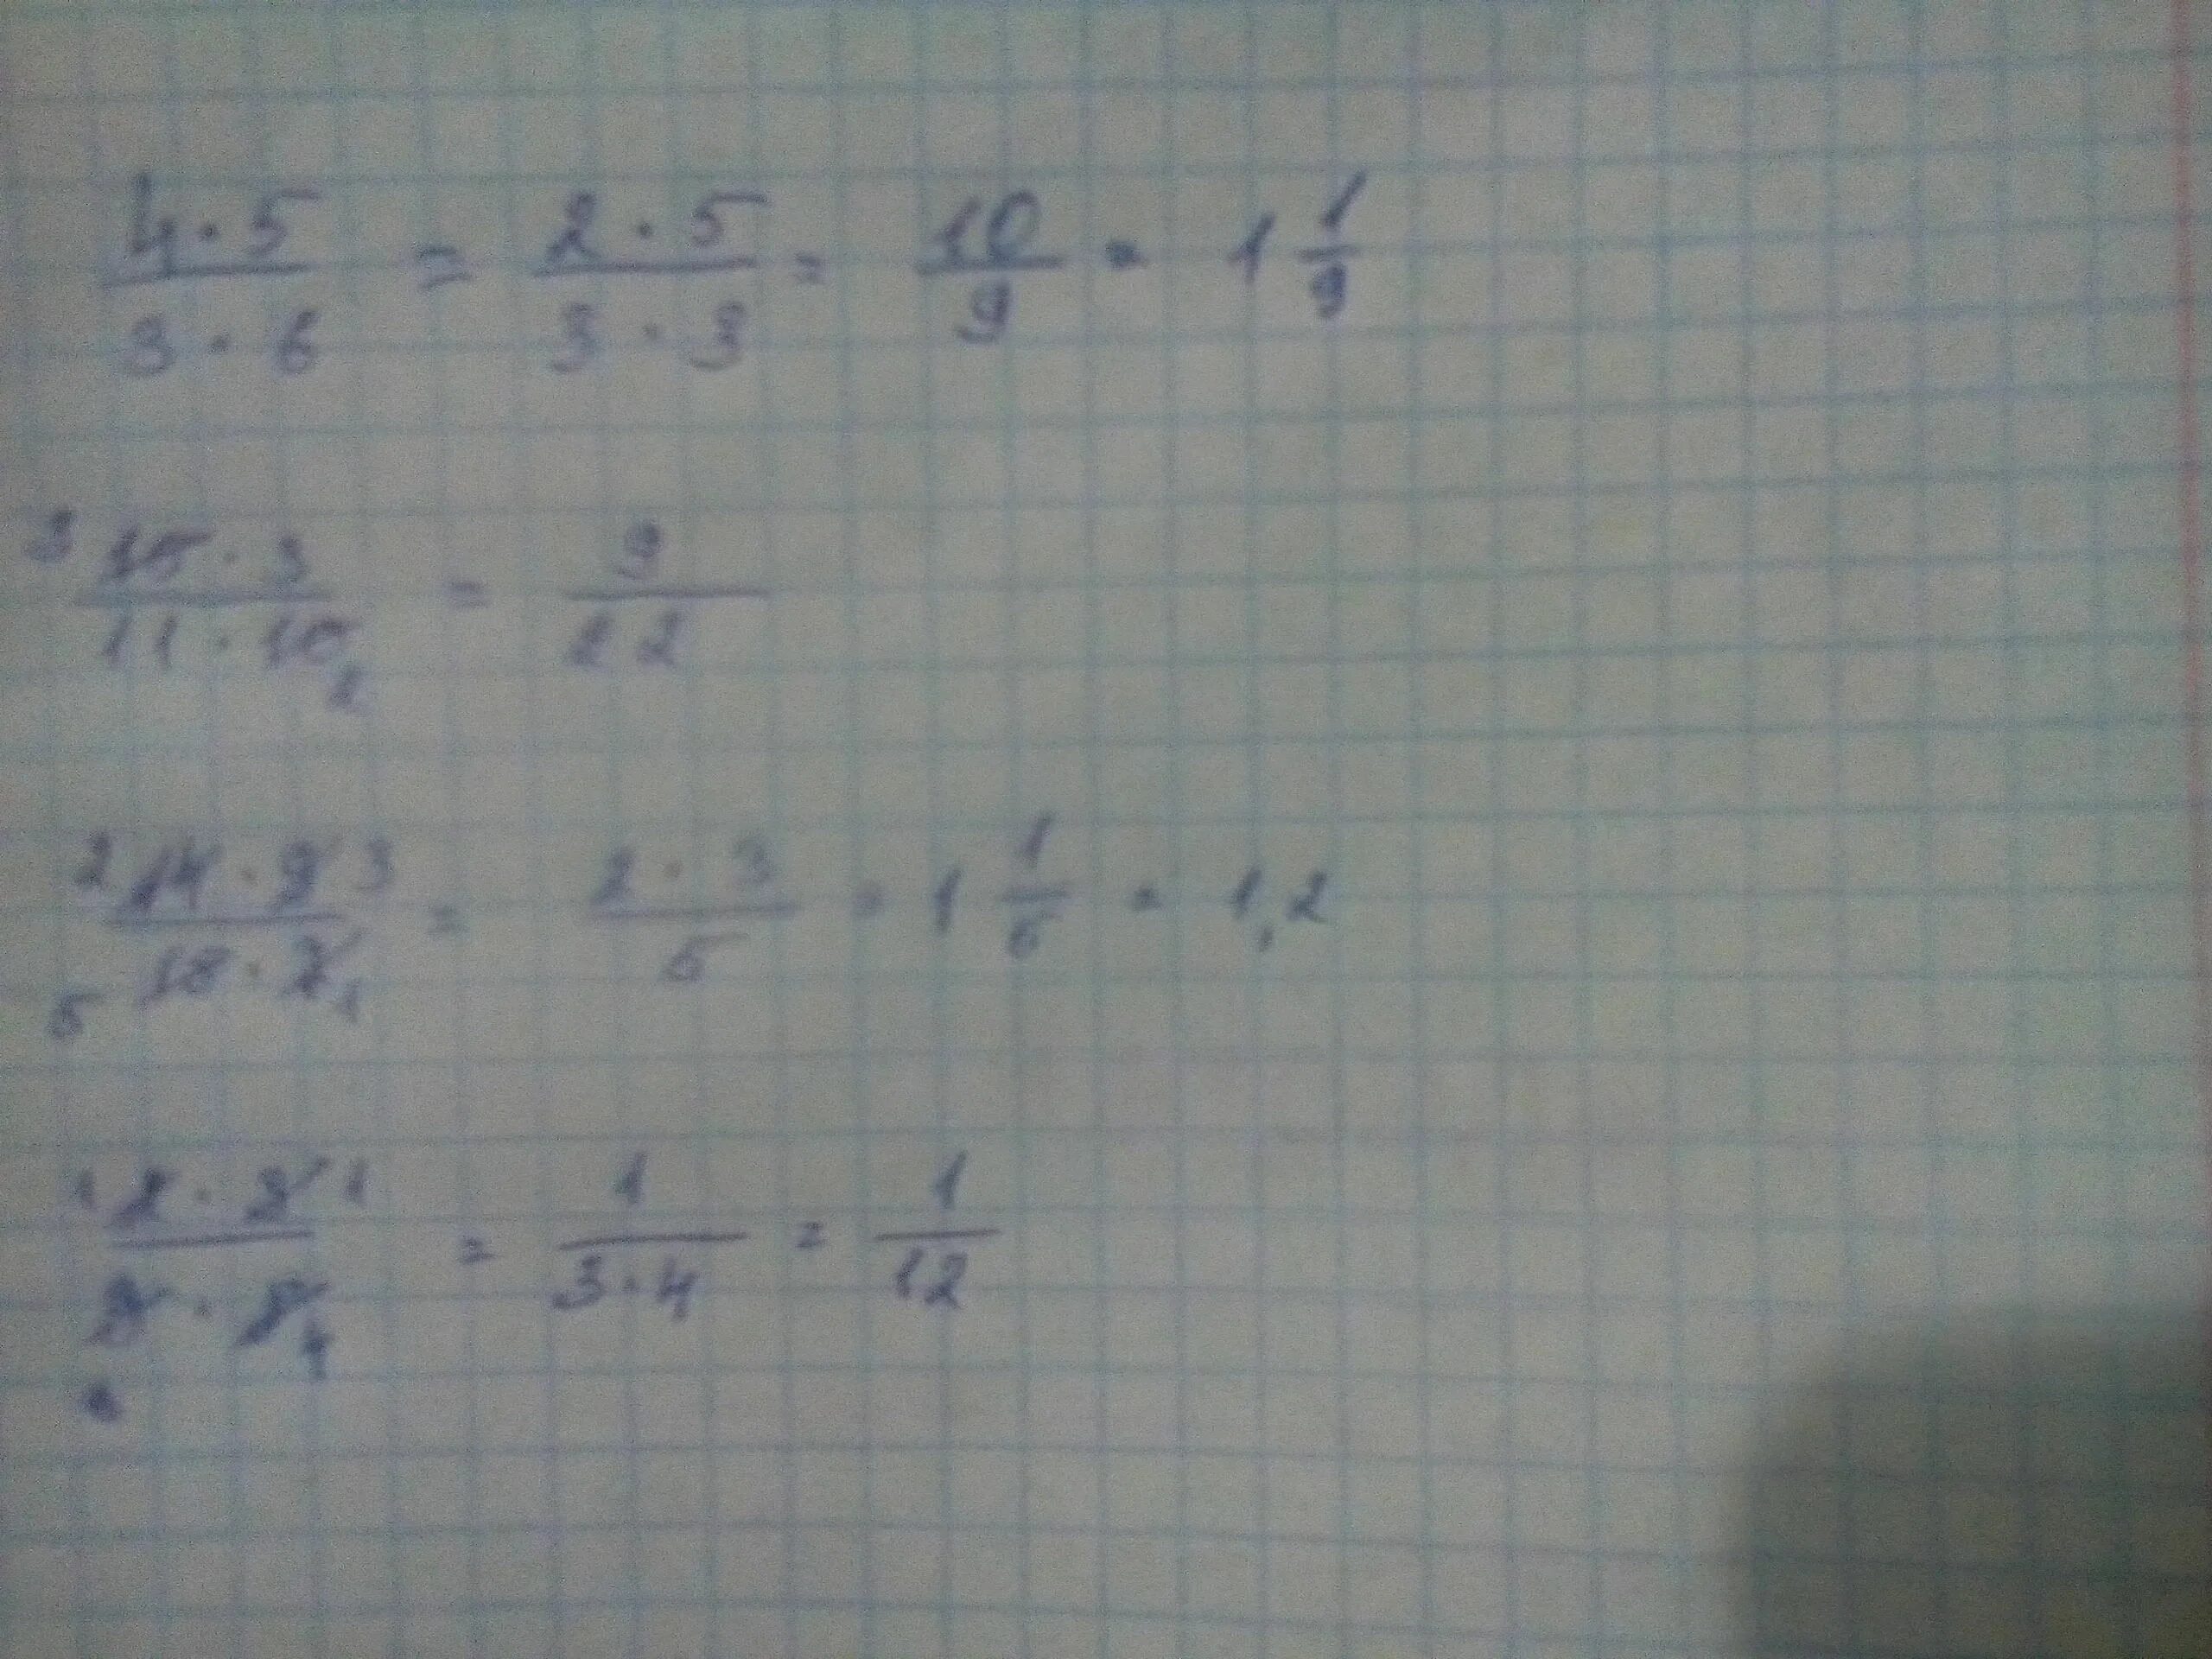 4 · 5 / 3 · 6 = 2 · 5 / 3 · 3 = 10 / 9 = 1 1/9
3 15 · 3 / 11 · 10 2 = 9 / 22
2 14 · 9 3 / 5 15 · 7 1 = 2 · 3 / 5 = 1 1/5 = 1,2
1 · 1 / 4 = 1 / 3 · 4 = 1 / 12